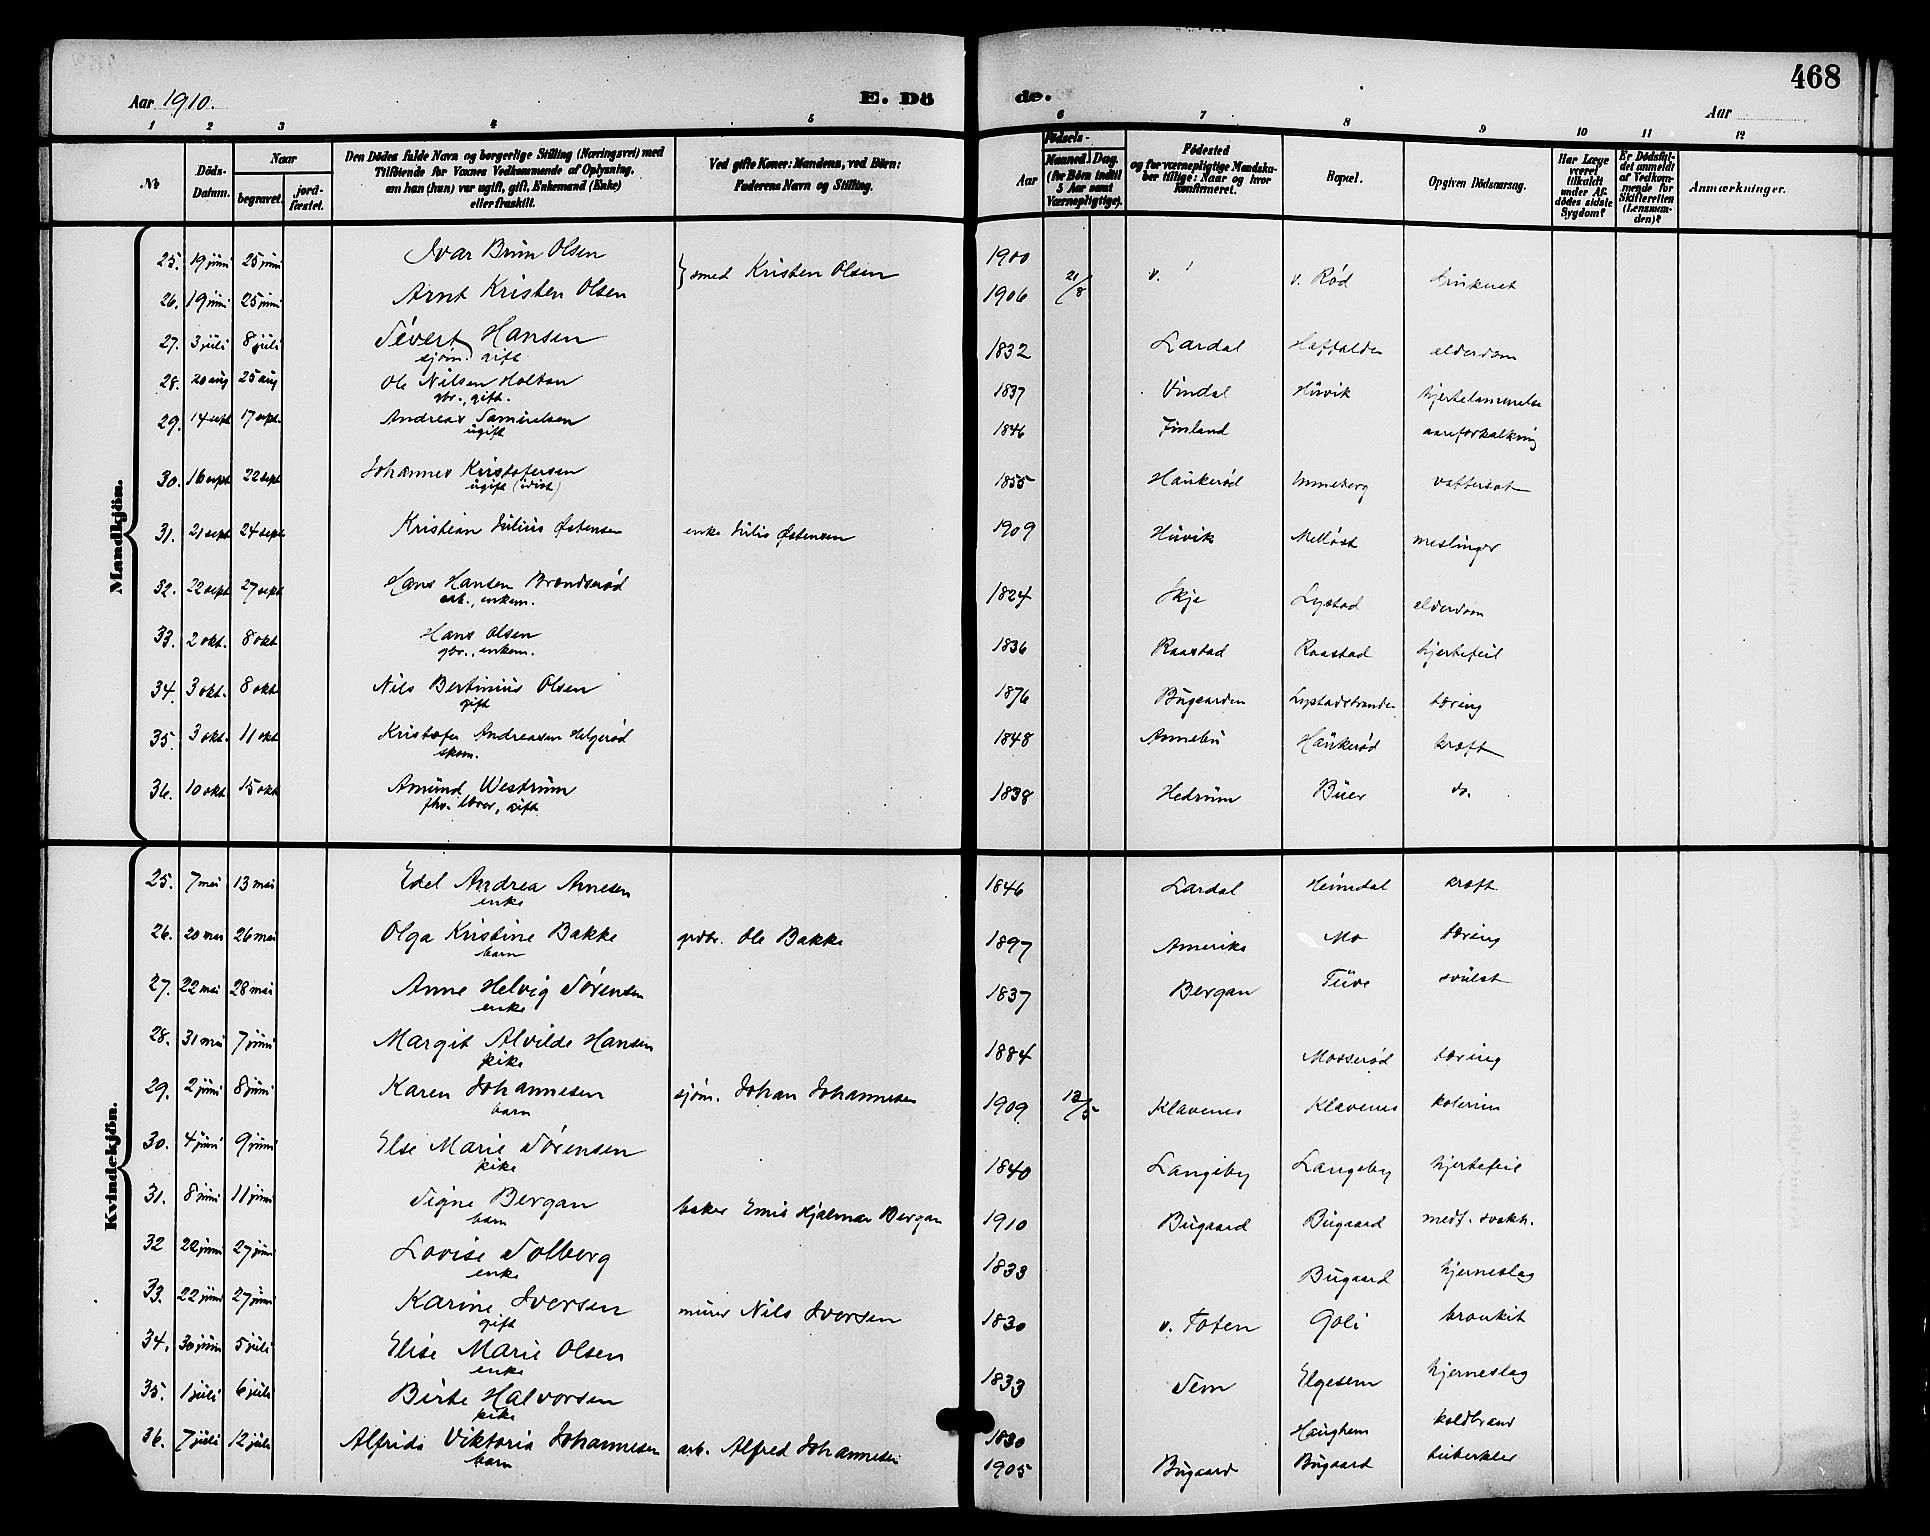 468
Aar 1910.
E. Dö
de.
Aar
1 2 3 4 5 6 7 8 9 10 11 12
No
Döds-Datum.
Naar
begravet.
jord-fæstet.
Den Dödes fulde Navn og borgerlige Stilling (Næringsvei) med
Tilföiende for Voxnes Vedkommende af Oplysning,
om han (hun) var ugift, gift, Enkemand (Enke)
eller fraskilt.
Ved gifte Koner: Mandens, ved Börn:
Faderens Navn og Stilling.
Aar
Födsels-
Maaned. Dag.
(for Börn indtil
5 Aar samt
Værnepligtige).
Födested
og for værnepligtige Mandska-
ber tillige: Naar og hvor
konfirmeret.
Bopæl.
Opgiven Dödsaarsag.
Har Læge
været
tilkaldt
under Af-
dödes sidste
Sygdom?
Er Dödsfal-
det anmeldt
af Vedkom-
mende for
Skifteretten
(Lensman-
den)?
Anmærkninger.
Mandkjön.
25. 19 juni 25 juni Ivar Brun Olsen } smed Kristen Olsen 1900 v. Rød druknet
26. 19 juni 25 juni Arnt Kristen Olsen 1906 21/8
27. 3 juli 8 juli Sivert Hansen 1832 Lardal alderdom
sjøm. gift
28. 20 aug 25 aug Ole Nilsen Holtan 1837 Vindal Huvik hjertelammelse
gbr., gift.
29. 14 sept 17 sept. Andreas Samuelsen 1846 Finland aareforkalkning
ugift
30. 16 sept 22 sept Johannes Kristofersen 1855 Haukerød Unneberg vattersot
ugift (idiot)
31. 21 sept 24 sept Kristian Julius Østensen enke Julie Østensen 1909 Huvik Melløst meslinger
32. 22 sept 27 sept Hans Hansen Brendserød 1824 Skje Lystad elderdom
arb., enkem.
33. 2 okt. 8 okt Hans Olsen 1836 Raastad Raastad hjertefeil
gbr., enkem.
34. 3 okt. 8 okt Nils Bertinius Olsen 1876 Bugaarden Lystadstranden tæring
gift
35. 3 okt. 11 okt Kristofer Andreasen Helgerød 1848 Annebu Haukerød kræft
skom.
36. 10 okt 15 okt Amund Westrum 1838 Hedrum Buer do.
fhv. lærer, gift
Kvindekjön.
25. 7 mai 13 mai Edel Andrea Arnesen 1846 Lardal Heimdal kræft
enke
26. 20 mai 26 mai Olga Kristine Bakke grdbr. Ole Bakke 1897 Amerika Mo tæring
barn
27. 22 mai 28 mai Anne Helvig Sørensen 1837 Bergan Tuve svulst
enke
28. 31 mai 7 juni Margit Alvilde Hansen 1884 Mosserød tæring
pike
29. 2 juni 8 juni Karen Johannesen sjøm. Johan Johannesen 1909 12/5 Klavenes Klavenes kolerine
barn
30. 4 juni 9 juni Else Marie Sørensen 1840 Langeby Langeby hjertefeil
pike
31. 8 juni 11 juni Signe Bergan baker Emil Hjalmar Bergan 1910 Bugaard Bugaard medf. svakh.
barn
32 22 juni 27 juni Lovise Solberg 1833 Bugaard hjerneslag
enke
33. 22 juni 27 juni Karine Iversen murer Nils Iversen 1830 v. Toten Goli bronkit
gift
34. 30 juni 5 juli Elise Marie Olsen 1833 Sem Elgesem hjerneslag
enke
35. 1 juli 6 juli Birte Halvorsen 1830 Haughem koldbrand
pike
36. 7 juli 12 juli Alfrida Viktoria Johannesen arb. Alfred Johannesen 1905 Bugaard Bugaard tuberkler
barn